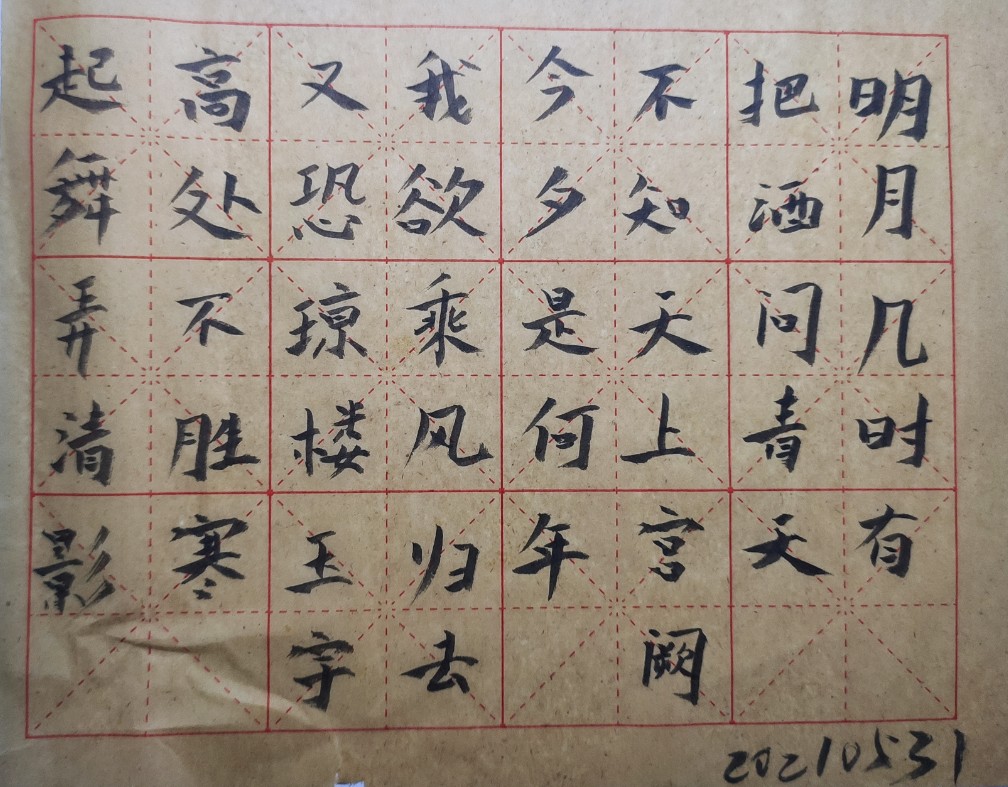 明月几时有
把酒问青天
不知天上宫阙
今夕是何年
我欲乘风归去
又恐琼楼玉宇
高处不胜寒
起舞弄清影
20210531